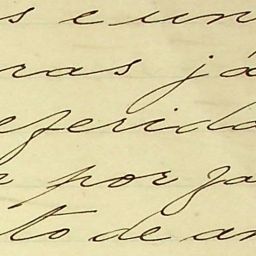 s e un
ras já
eferida
r por fa
to de an